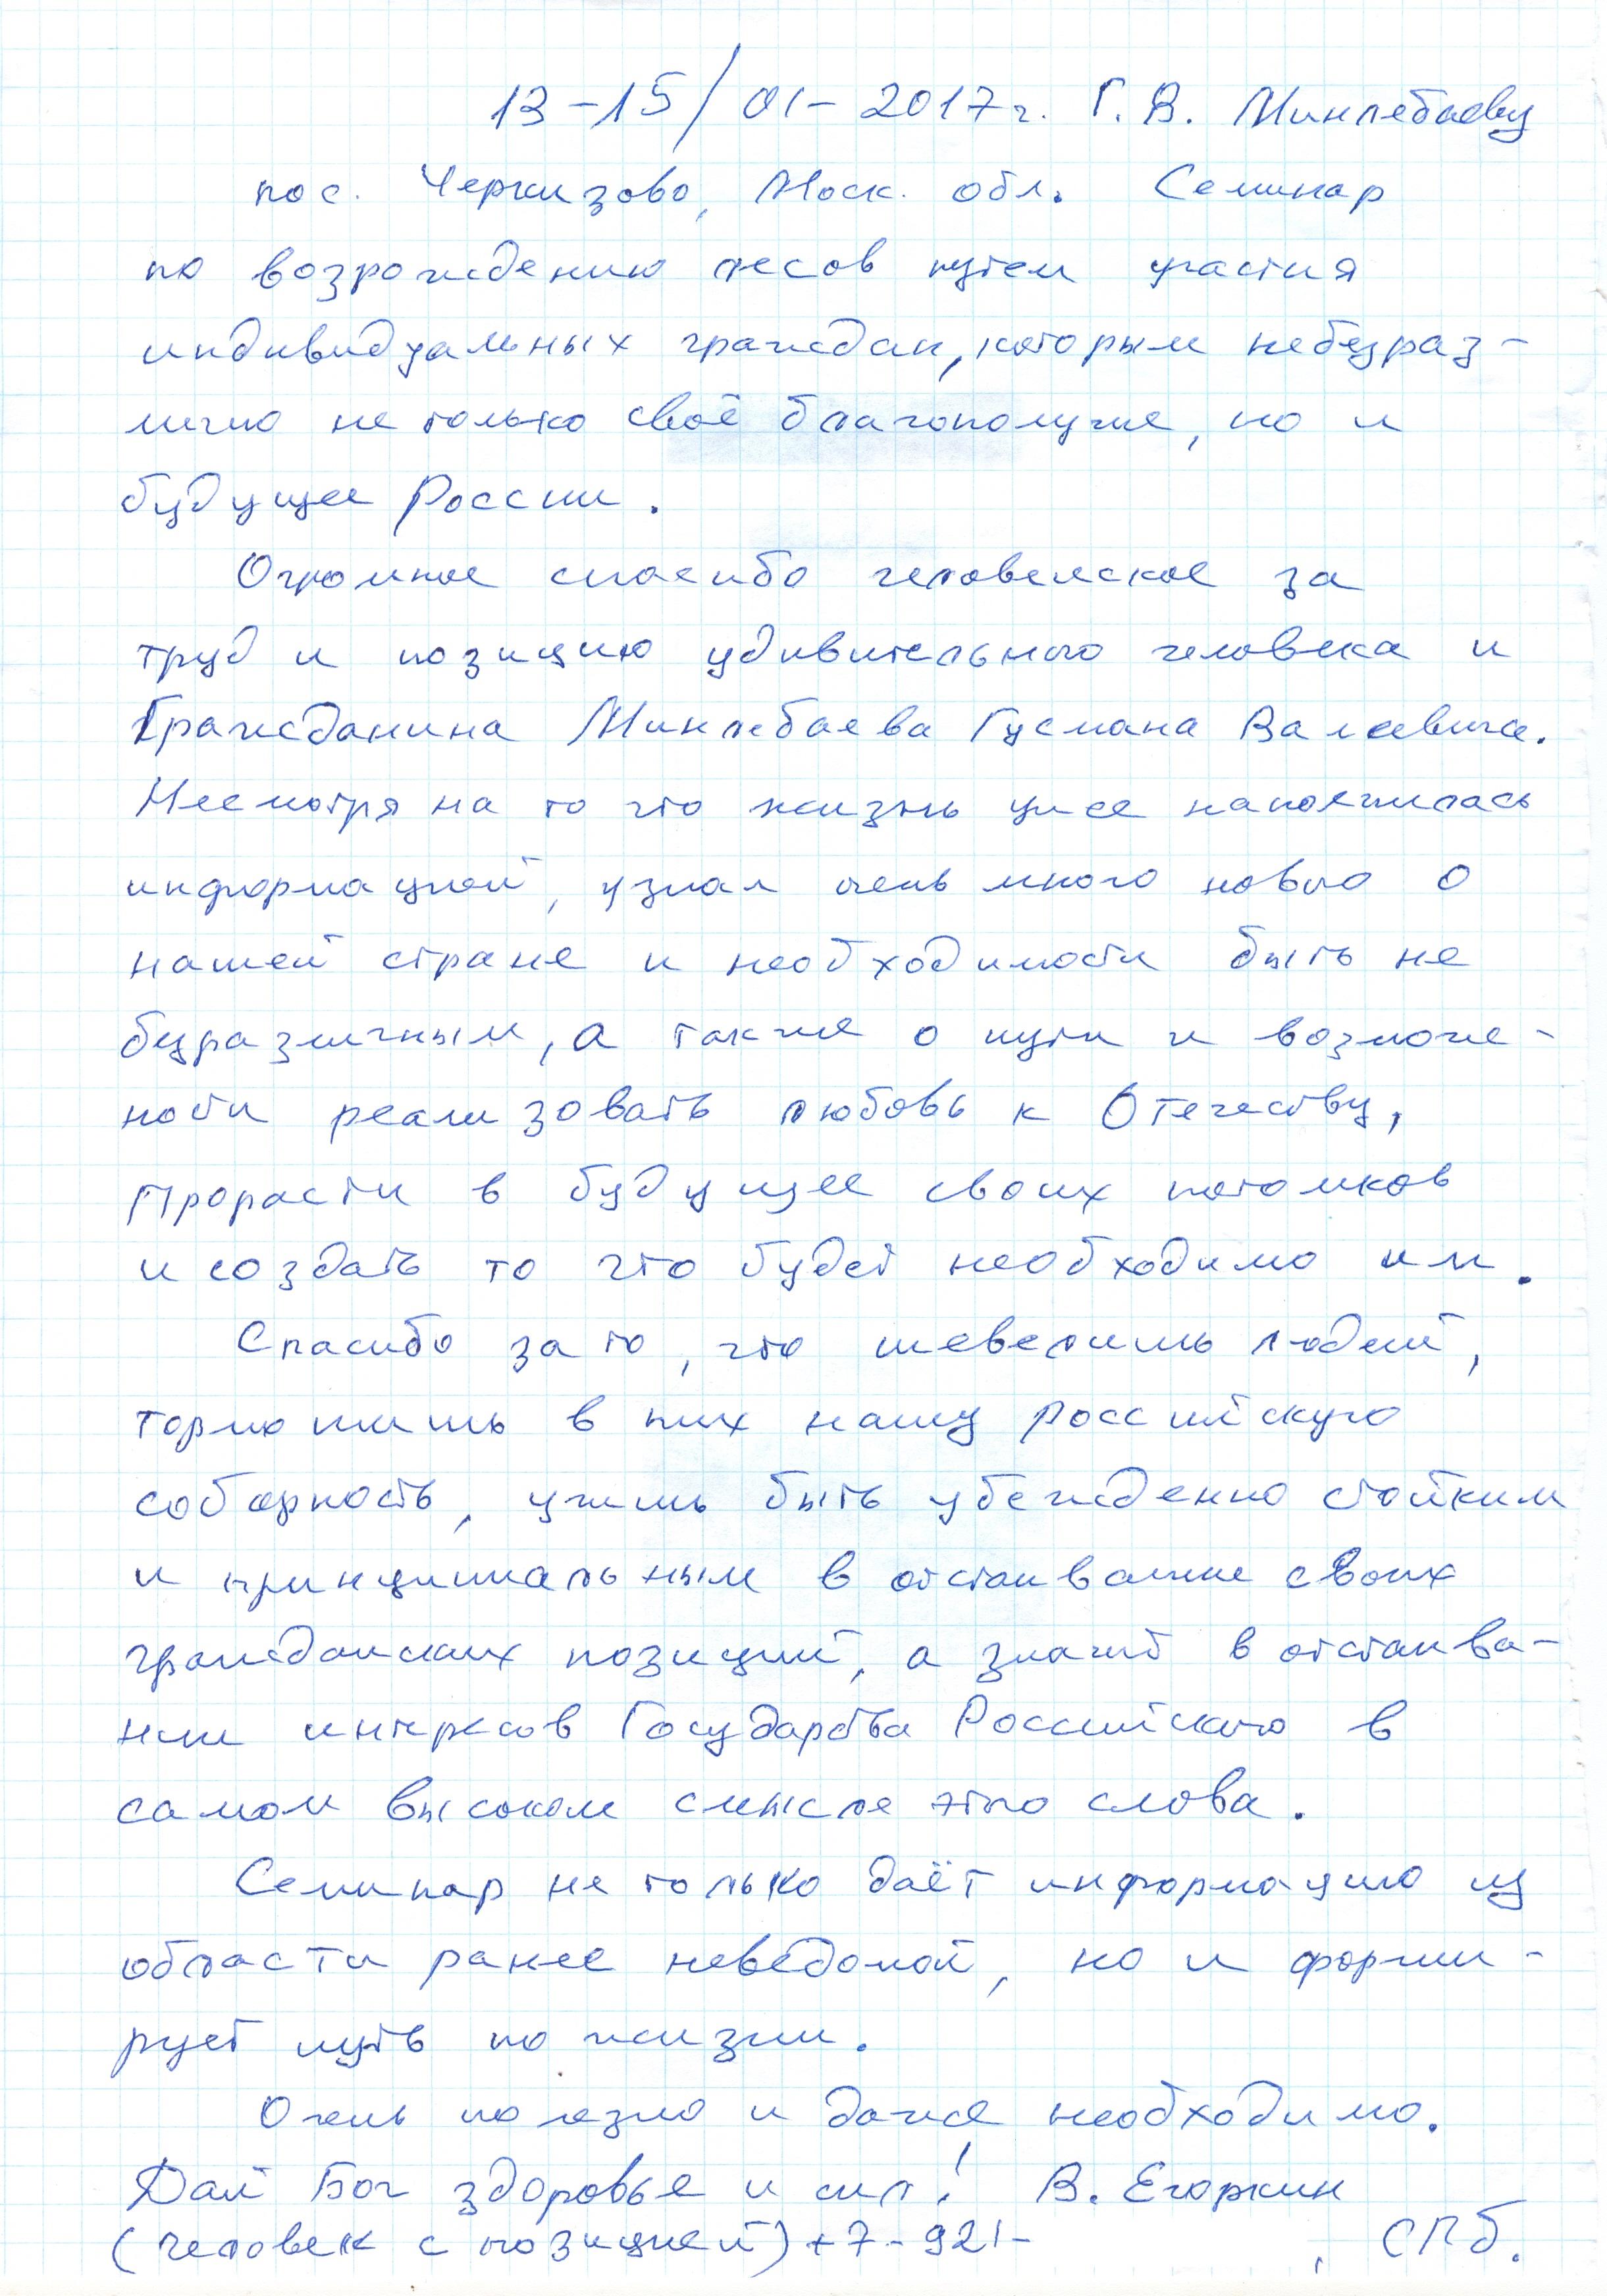 13-15/01-2017г. Г. В. Минлебаеву
пос. Черкизово, Моск. обл. Семинар
по возрождению лесов путем участия
индивидуальных граждан, которым небезраз-
лично не только своё благополучие, но и
будущее России.
Огромное спасибо человеческое за
труд и позицию удивительного человека и
Гражданина Минлебаева Гусмана Валеевича.
Несмотря на то что жизнь уже наполнилась
информацией, узнал очень много нового о
нашей стране и необходимости быть не
безразличным, а также о пути и возмож-
ности реализовать любовь к Отечеству,
прорасти в будущее своих потомков
и создать то что будет необходимо им.
Спасибо за то, что шевелишь людей,
тормошишь в них нашу российскую
соборность, учишь быть убежденно стойким
и принципиальным в отстаивание своих
гражданских позиций, а значит в отстаива-
нии интересов Государства Российского в
самом высоком смысле этого слова.
Семинар не только даёт информацию из
области ранее неведомой, но и форми-
рует путь по жизни.
Очень полезно и даже необходимо.
Дай Бог здоровье и сил! В. Егоркин
(человек с позицией) +7-921- , СПб.